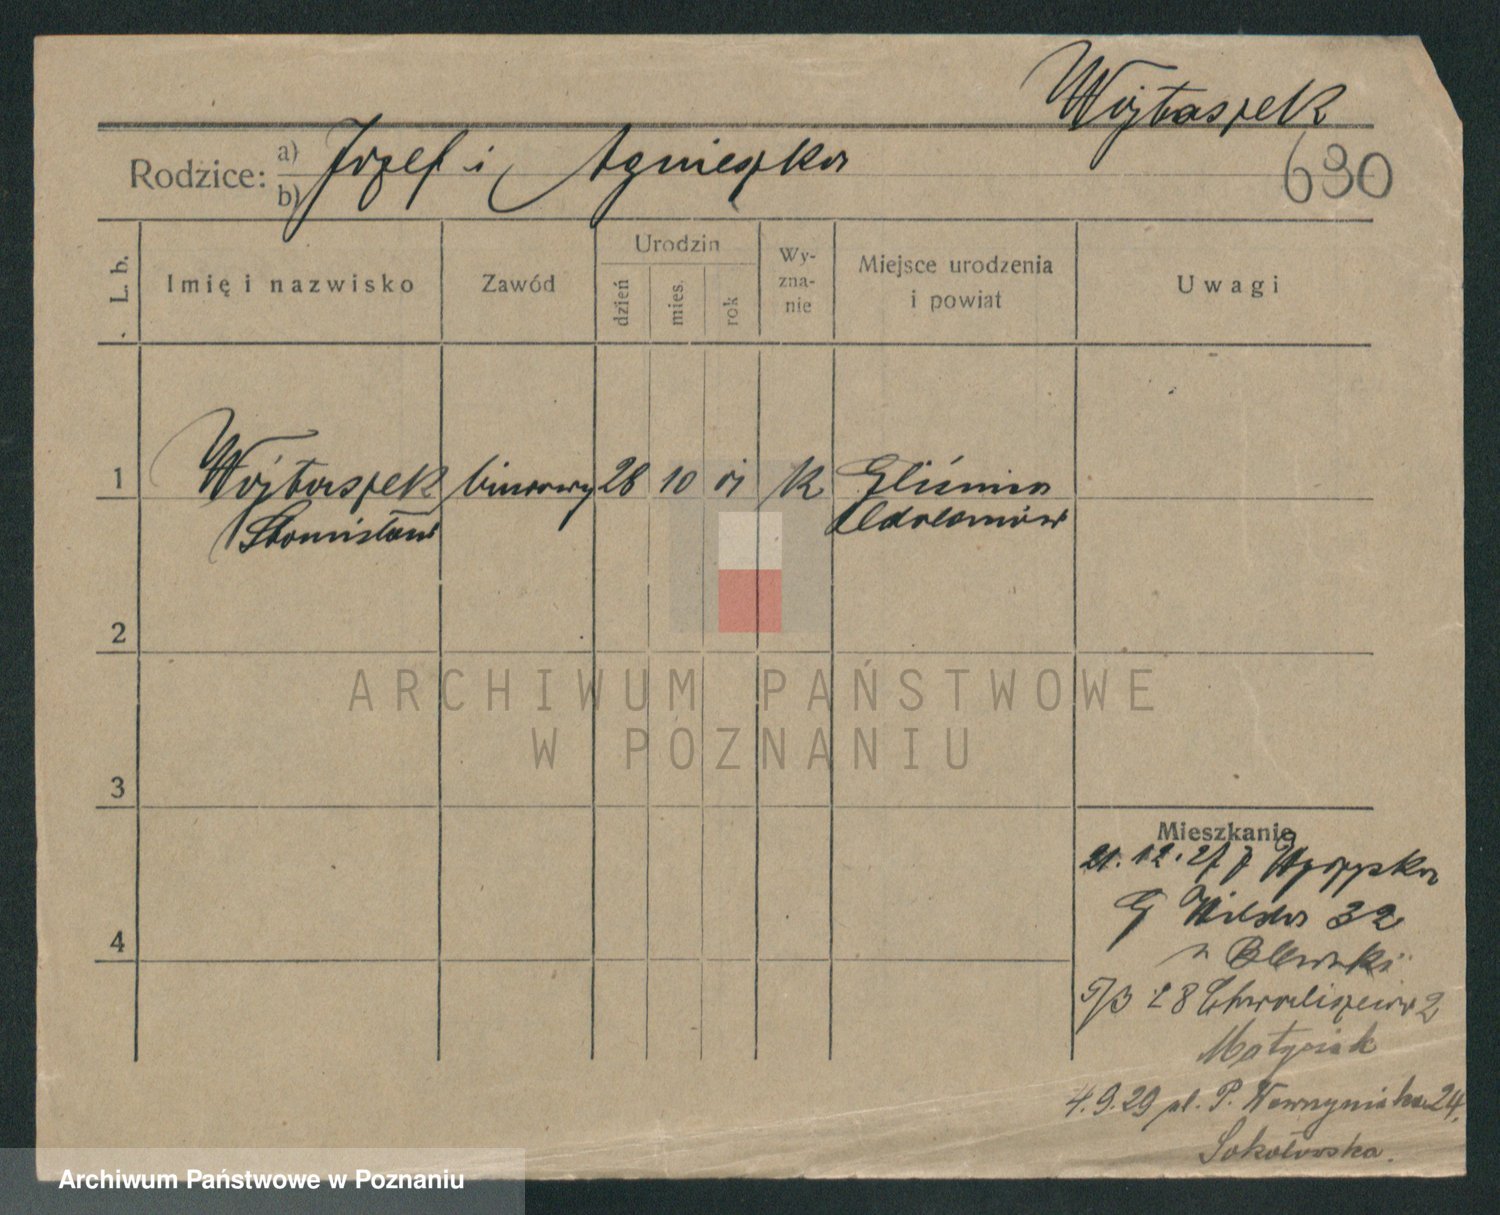 Wojtaszek
630
Rodzice: a) Józef i Agnieszka
b)
L. b.
Imię i nazwisko
Zawód
Urodzin
dzień
mies.
rok
Wy-
zna-
nie
Miejsce urodzenia
i powiat
Uwagi
1 Wojtaszek biurowy 28 10 01 K Gluśnia
Stanisław
2
3
4
Mieszkanie
21.12.27
G Wilda 32
5/3 28 Chwaliszewo 2
Matysiak
4.9.29 ul. P. Wawrzyniaka 24.
Sokołowska.
ARCHIWUM PAŃSTWOWE
W POZNANIU
Archiwum Państwowe w Poznaniu